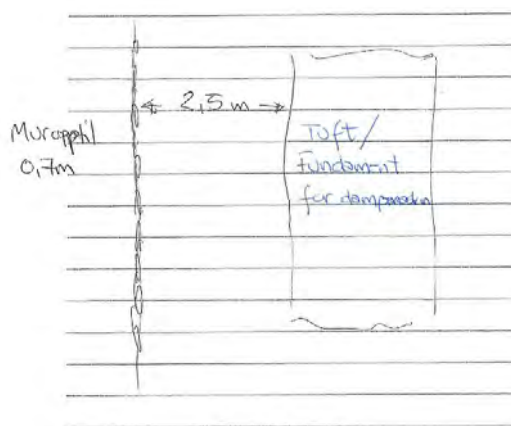 2,5 m
Mur opptil
0,7m
Tuft/
Fundament
for dampmaskin